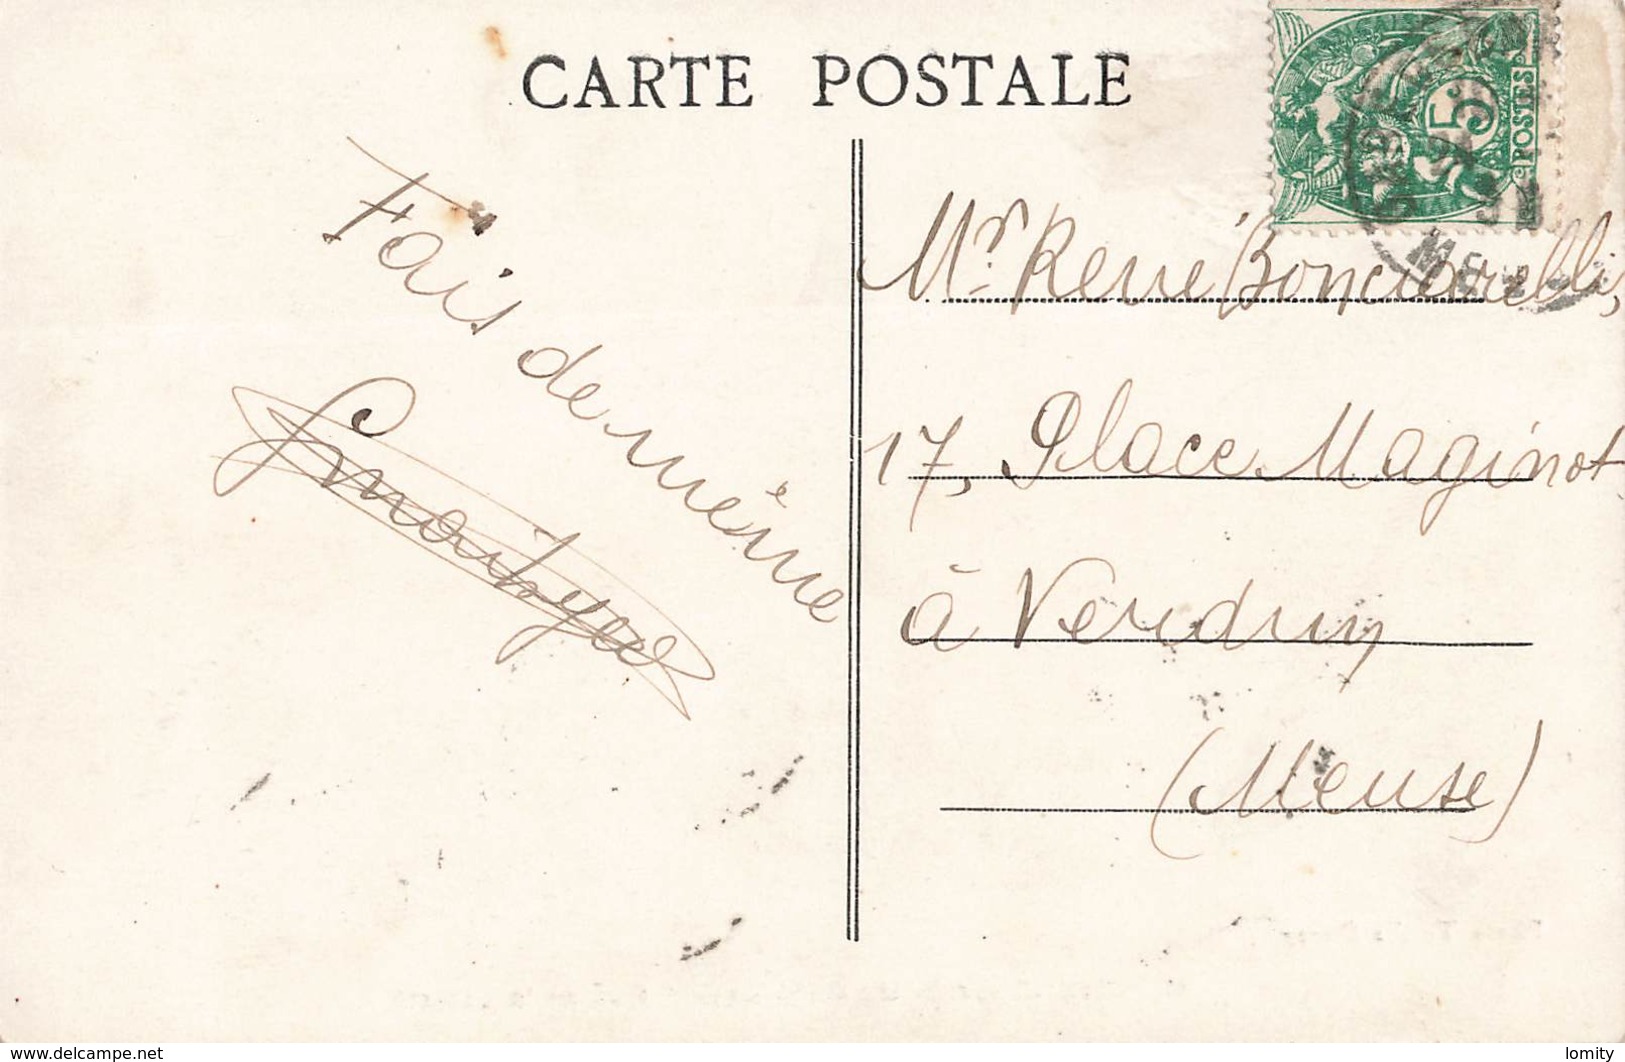 CARTE POSTALE
5
POSTES
Fais de même
Mr. René Bonciarelli,
17, Place Maginot
à Verdun
(Meuse)
www.delcampe.net
lomity